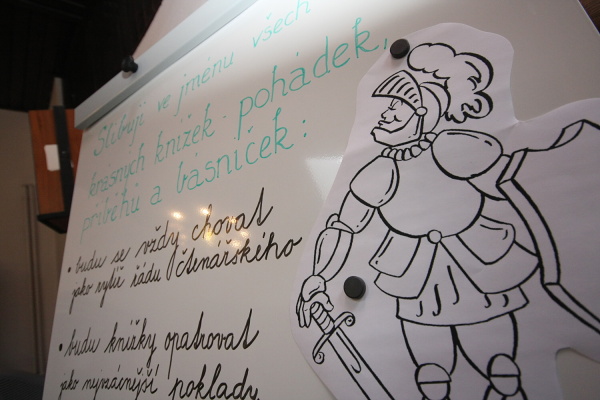 Slibuji ve jménu všech
krásných knížek pohádek,
příběhů a básniček:
• budu se vždy chovat
jako rytíř řádu čtenářského
• budu knížky opatrovat
jako nejvzácnější poklady.